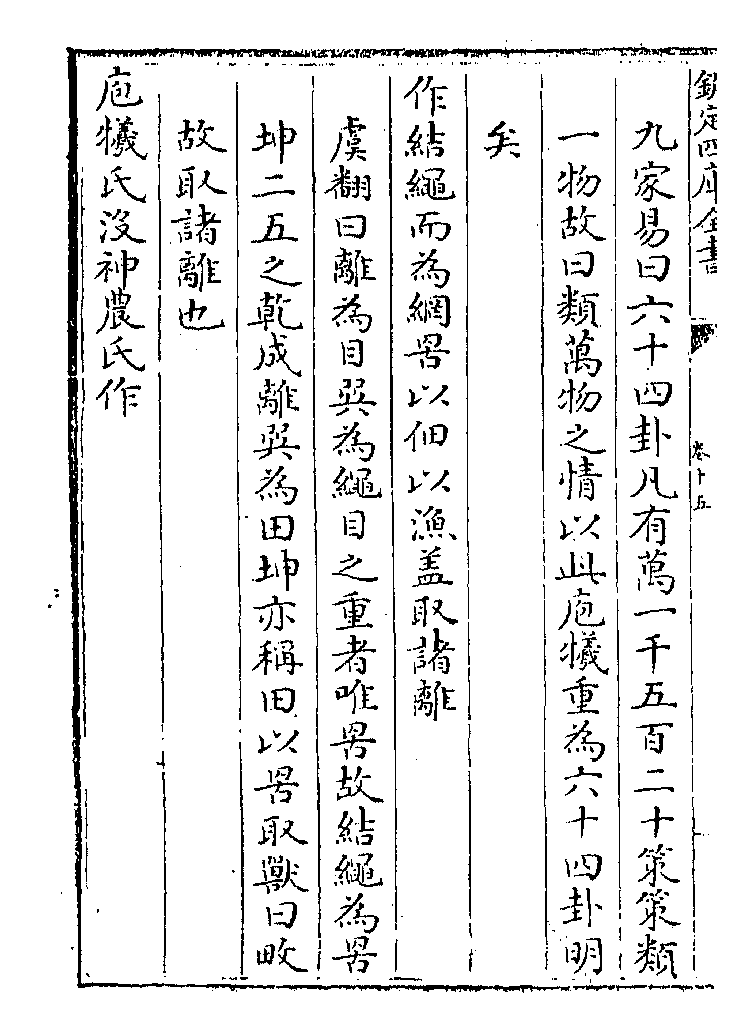 欽定四庫全書
卷十五
九家易曰六十四卦凡有萬一千五百二十策策類
一物故曰類萬物之情以此庖犧重為六十四卦明
矣
作結繩而為網罟以佃以漁盖取諸離
虞翻曰離為目巽為繩目之重者唯罟故結繩為罟
坤二五之乾成離巽為田坤亦稱田以罟取獸曰畋
故取諸離也
庖犧氏没神農氏作